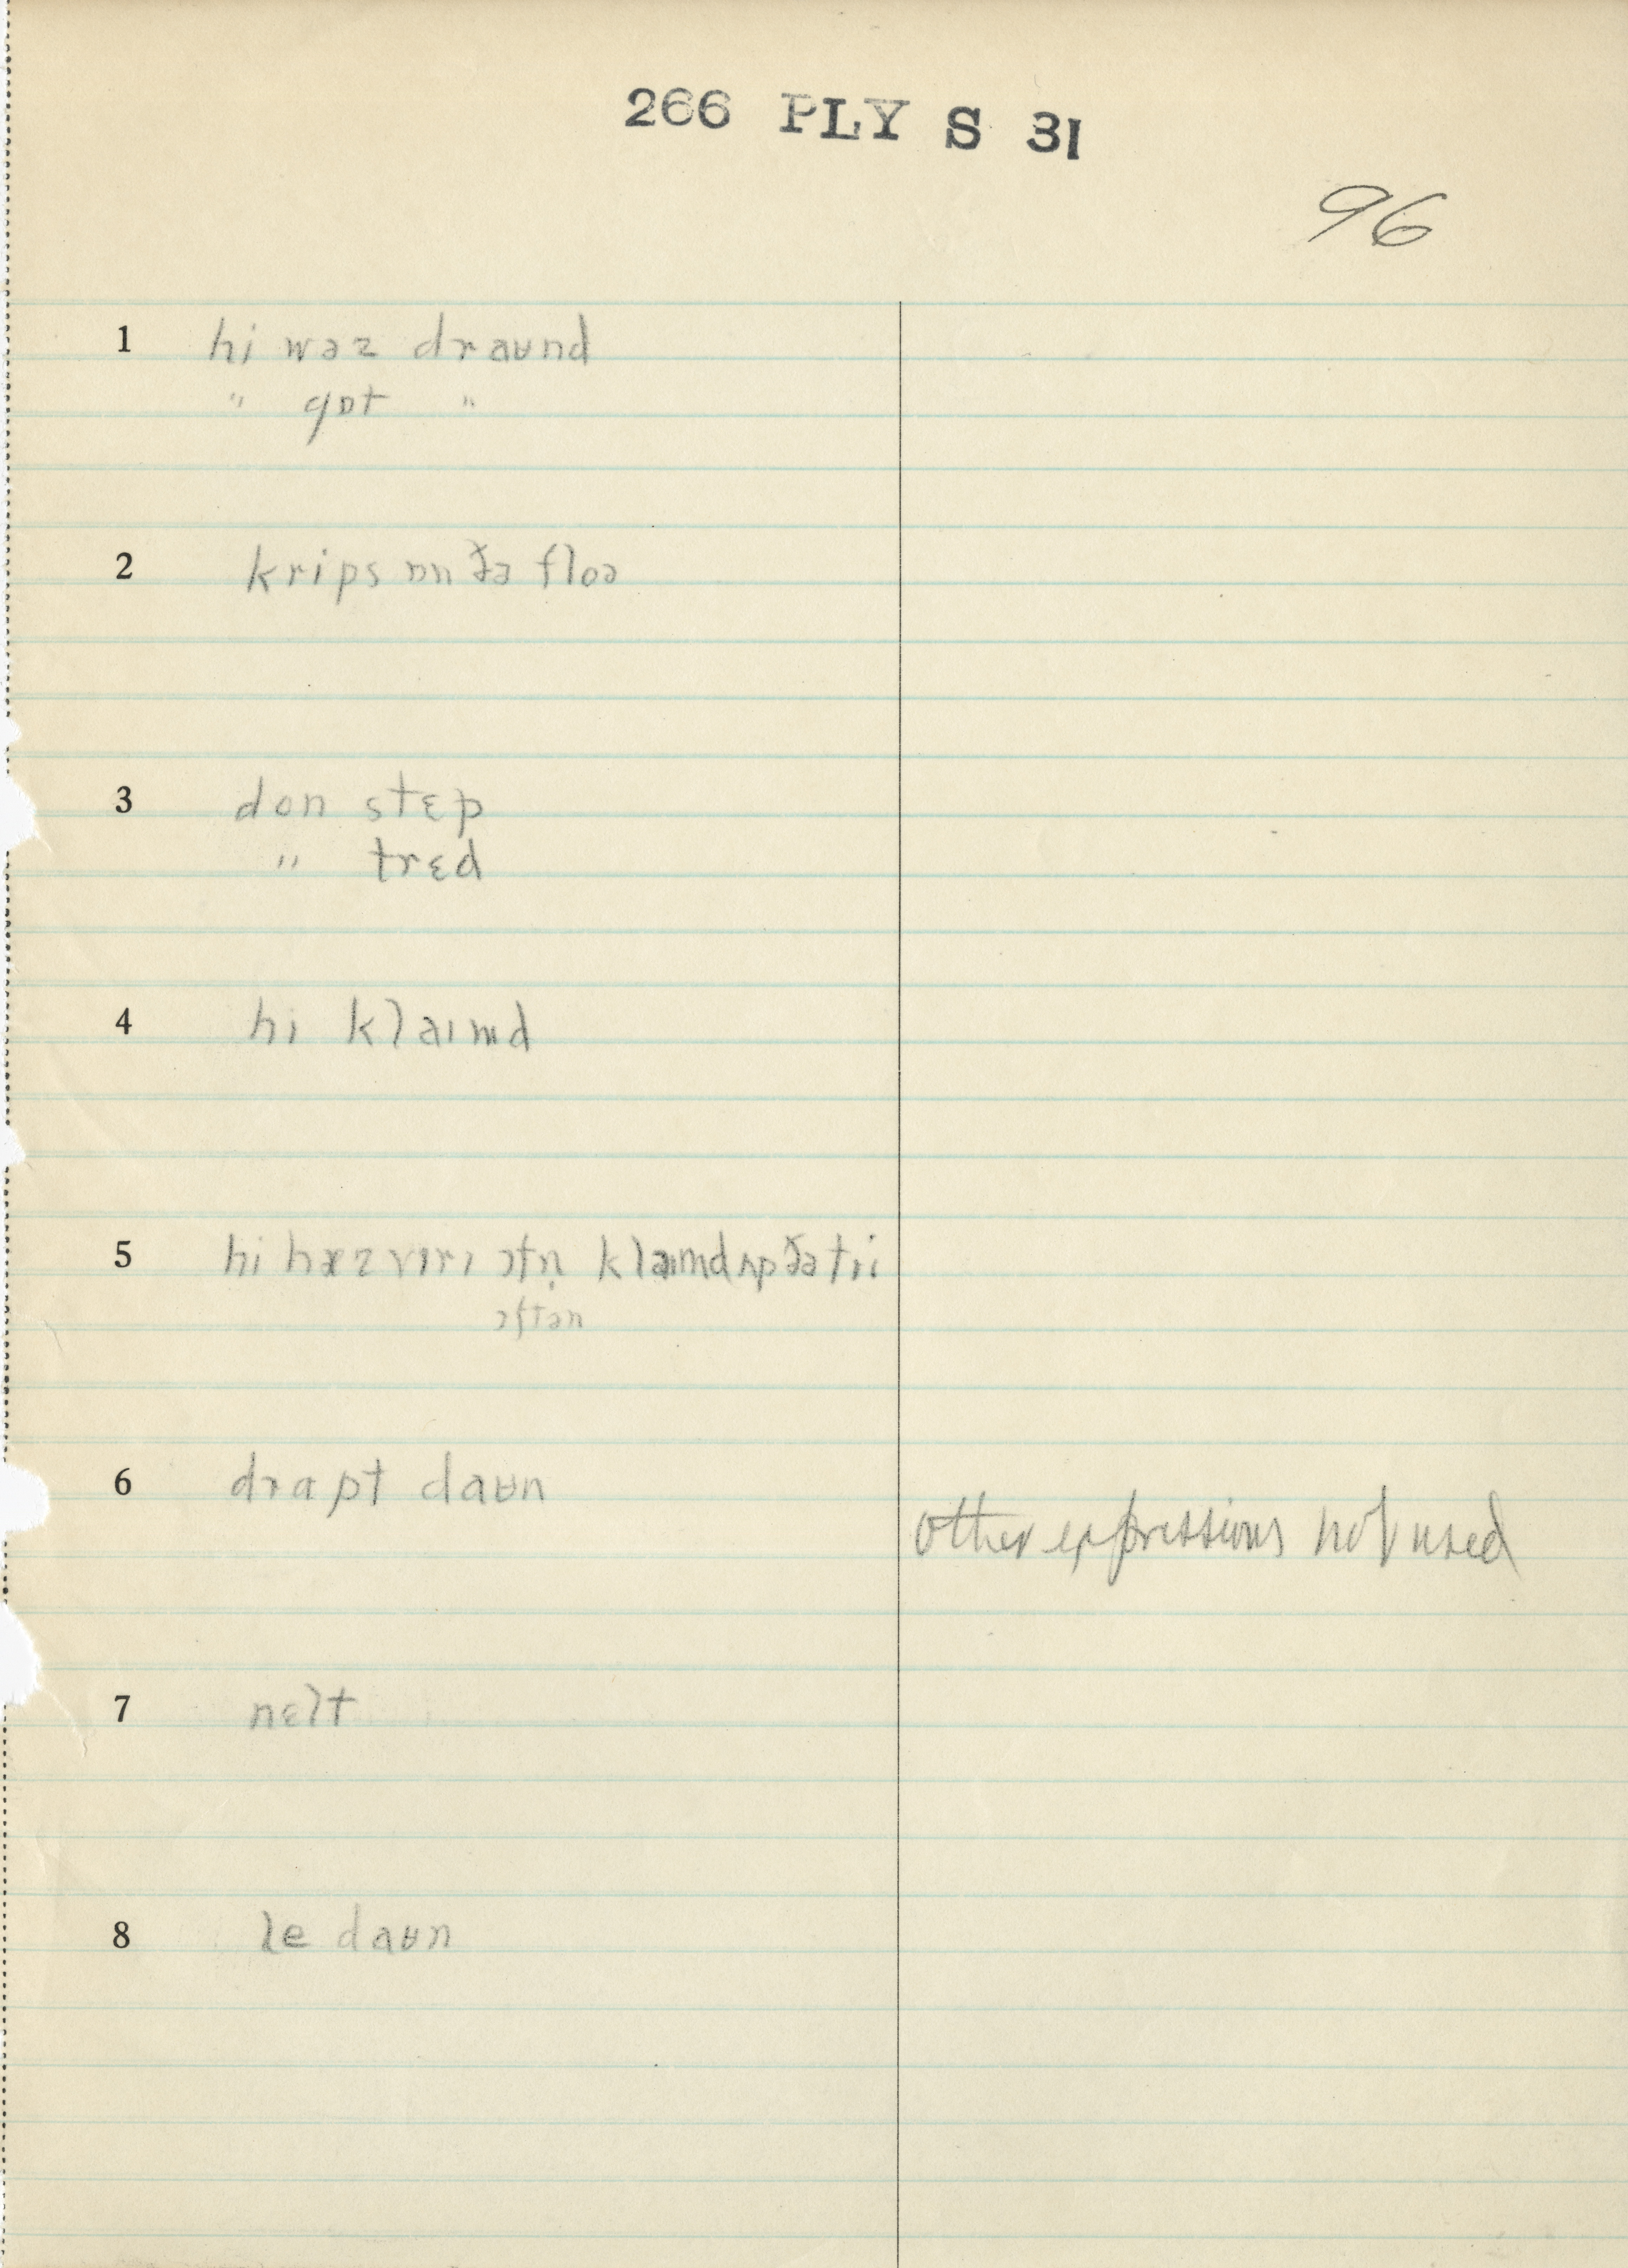 266 PLY S 31
96
1 hi wəz draʉnd
" gɒt "
2 krips ɒn ðə floə
3 don stɛp
" trɛd
4 hi klaɪmd
5 hi hæz vɪrɪ ɔfn̩ klaɪmd ʌp ðə trii
ɔftən
6 drapt daʉn
other expressions not used
7 nɛlt
8 le daʉn